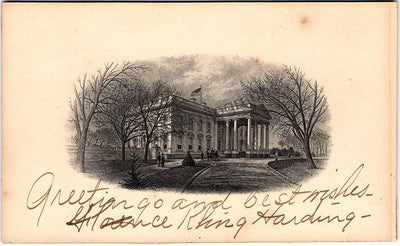 Greeting and best wishes-
Florence Kling Harding-